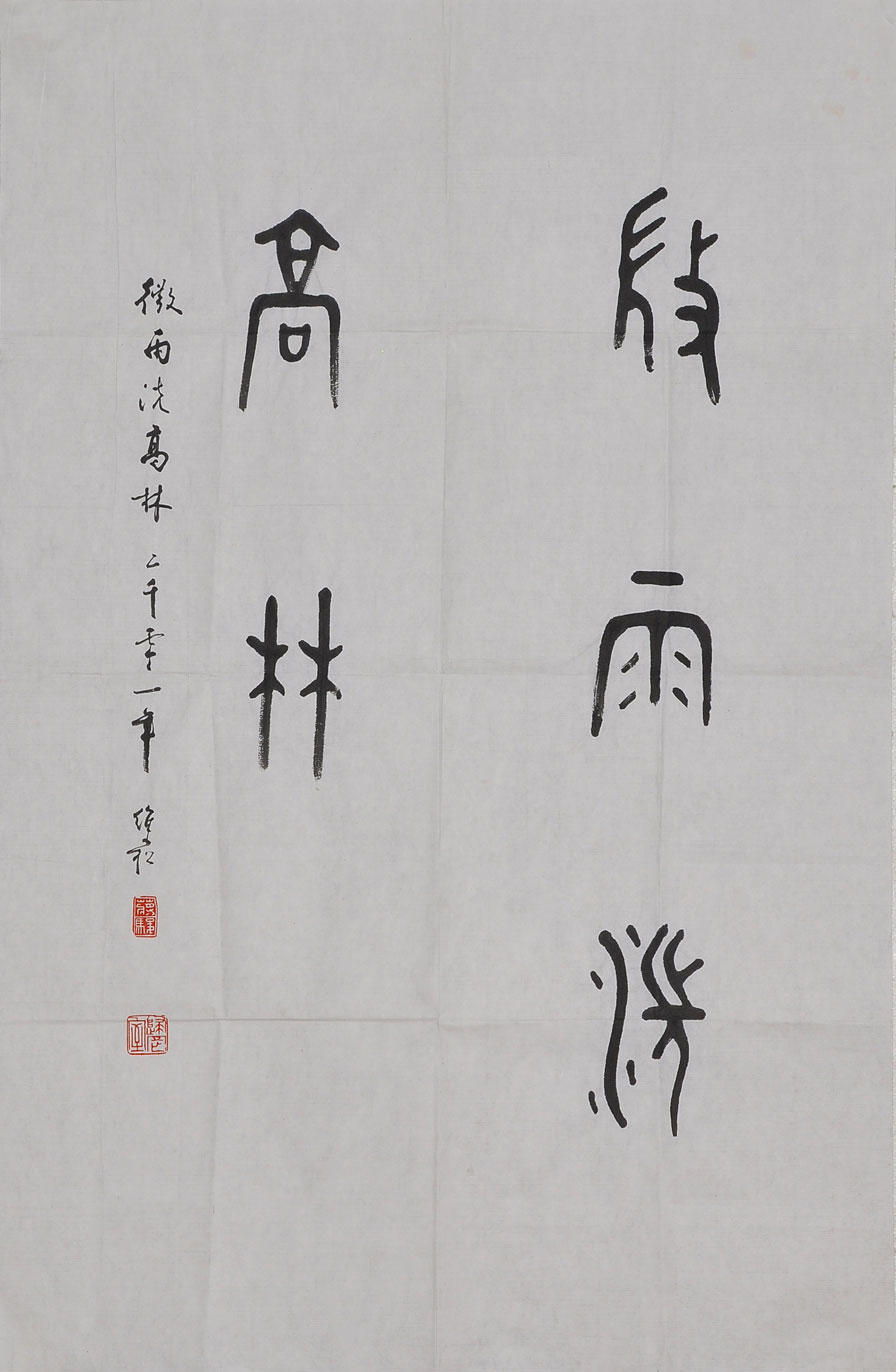 微雨洗
高林
微雨洗高林 二千零一年 維崧